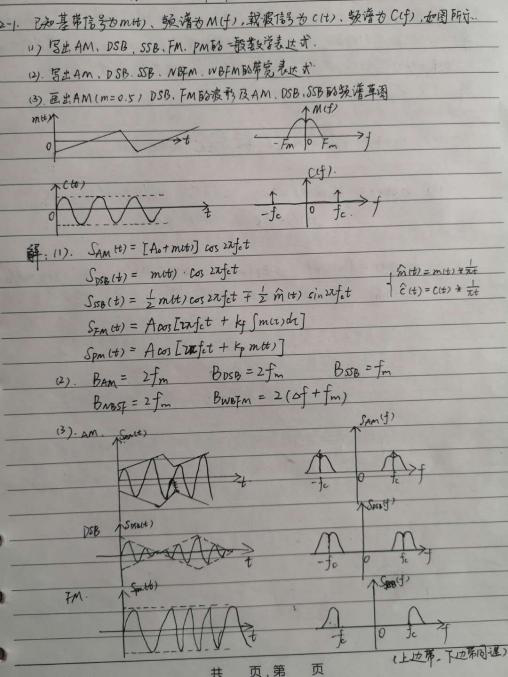 2-1. 已知基带信号为m(t)、频谱为M(f),载波信号为C(t)、频谱为C(f),如图所示.
(1) 写出AM、DSB、SSB、FM、PM的一般数学表达式.
(2). 写出AM、DSB、SSB、NBFM、WBFM的带宽表达式
(3). 画出AM(m=0.5) DSB、FM的波形及AM、DSB、SSB的频谱草图
m(t) 0 t M(f) -Fm 0 Fm f
C(t) 0 t C(f) -fc 0 fc f
解: (1). S_AM(t) = [A₀+m(t)] cos2πfct
S_DSB(t) = m(t)·cos2πfct
S_SSB(t) = ½ m(t) cos2πfct ∓ ½ m̂(t) sin2πfct { m̂(t) = m(t) * 1/πt
ĉ(t) = c(t) * 1/πt
S_FM(t) = A cos[2πfct + kf ∫m(τ)dτ]
S_PM(t) = A cos[2πfct + kp m(t)]
(2). B_AM = 2fm B_DSB = 2fm B_SSB = fm
B_NBSF = 2fm B_WBFM = 2(Δf + fm)
(3). AM. t S_AM(f) -fc 0 fc f
DSB S_DSB(t) t S_DSB(f) -fc 0 fc f
FM. t -fc 0 fc f
(上边带、下边带同理)
共 页,第 页